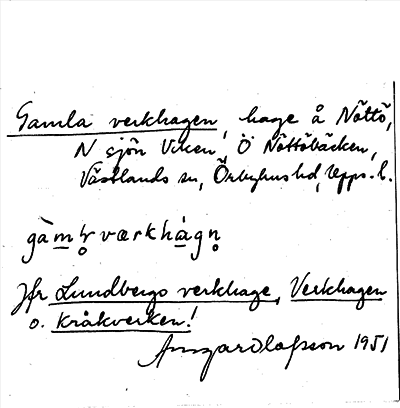 Gamla verkhagen, hage å Nöttö,
N sjön Viken, Ö Nöttöbäcken,
Västlands sn, Örbyhus hd, Upps. l.
gàm̲l̥r værkhàg̲n̥
Jfr Lundbergs verkhage, Verkhagen
o. Kråkverken!
Ansgar Olofsson 1951